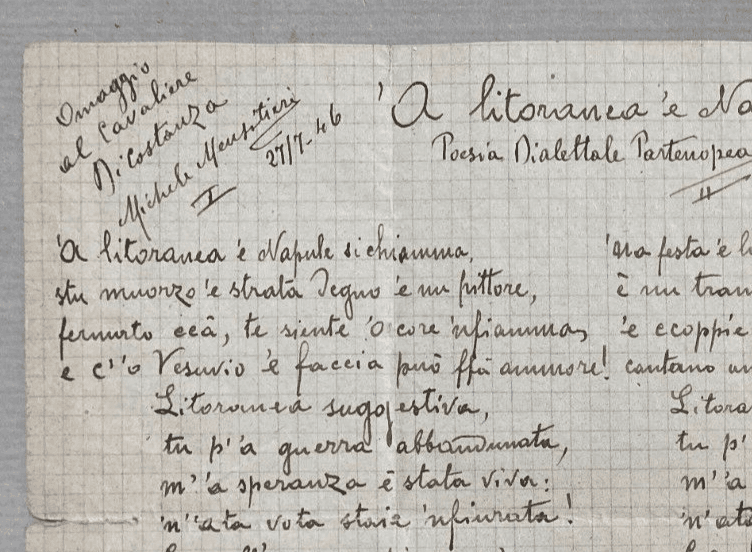 Omaggio
al Cavaliere
Di Costanza
Michele
27/7-46
I
'A litoranea 'e Na
Poesia Dialettale Partenopea
II
'A litoranea 'e Napule si chiamma,
stu muorzo 'e strata degno 'e nu pittore,
fermato ccà, te siente 'o core 'nfiamma,
e c' 'o Vesuvio 'e faccia può ffà ammore!
Litoranea suggestiva,
tu p' 'a guerra abbandunata,
m' 'a speranza è stata viva:
'n' 'ata vota staie 'nfiurata!
'na festa 'e
è nu
'e ccoppie
cantano
Litora
tu p'
m' 'a
'n' ata